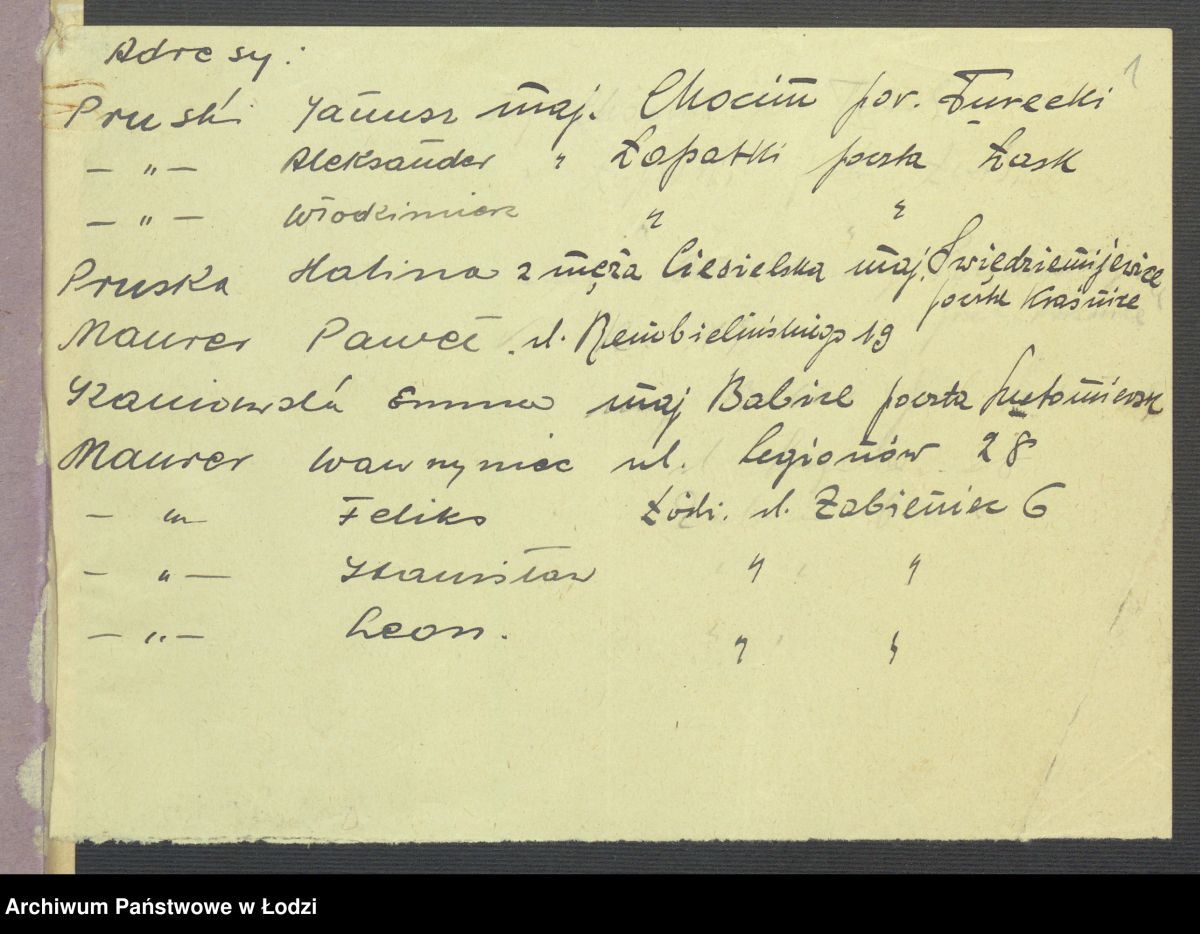 Adresy:
1
Pruski Janusz maj. Chocim pow. Turecki
— „ — Aleksander „ Łopatki poczta Łask
— „ — Włodzimierz „ „
Pruska Halina z męża Ciesielska maj.
poczta
Maurer Paweł ul. Rembielińskiego 19
Kaniowska Emma maj Babice poczta Lutomiersk
Maurer Wawrzyniec ul. Legionów 28
— „ — Feliks Łódź. ul. Żabieniec 6
— „ — Stanisław „ „
— „ — Leon. „ „
Archiwum Państwowe w Łodzi